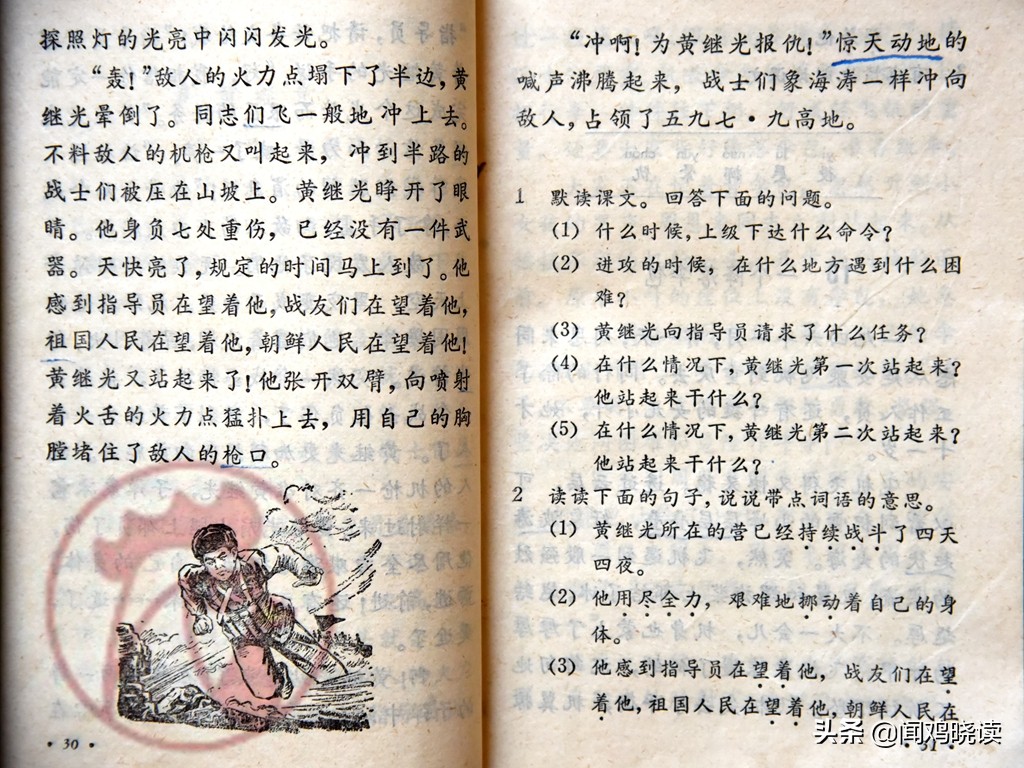 探照灯的光亮中闪闪发光。
“轰！”敌人的火力点塌下了半边，黄
继光晕倒了。同志们飞一般地冲上去。
不料敌人的机枪又叫起来，冲到半路的
战士们被压在山坡上。黄继光睁开了眼
睛。他身负七处重伤，已经没有一件武
器。天快亮了，规定的时间马上到了。他
感到指导员在望着他，战友们在望着他，
祖国人民在望着他，朝鲜人民在望着他！
黄继光又站起来了！他张开双臂，向喷射
着火舌的火力点猛扑上去，用自己的胸
膛堵住了敌人的枪口。
· 30 ·
“冲啊！为黄继光报仇！”惊天动地的
喊声沸腾起来，战士们象海涛一样冲向
敌人，占领了五九七·九高地。
1 默读课文。回答下面的问题。
(1) 什么时候，上级下达什么命令？
(2) 进攻的时候，在什么地方遇到什么困
难？
(3) 黄继光向指导员请求了什么任务？
(4) 在什么情况下，黄继光第一次站起来？
他站起来干什么？
(5) 在什么情况下，黄继光第二次站起来？
他站起来干什么？
2 读读下面的句子，说说带点词语的意思。
(1) 黄继光所在的营已经持续战斗了四天
四夜。
(2) 他用尽全力，艰难地挪动着自己的身
体。
(3) 他感到指导员在望着他，战友们在望
着他，祖国人民在望着他，朝鲜人民在
· 31 ·
头条 @闻鸡晓读